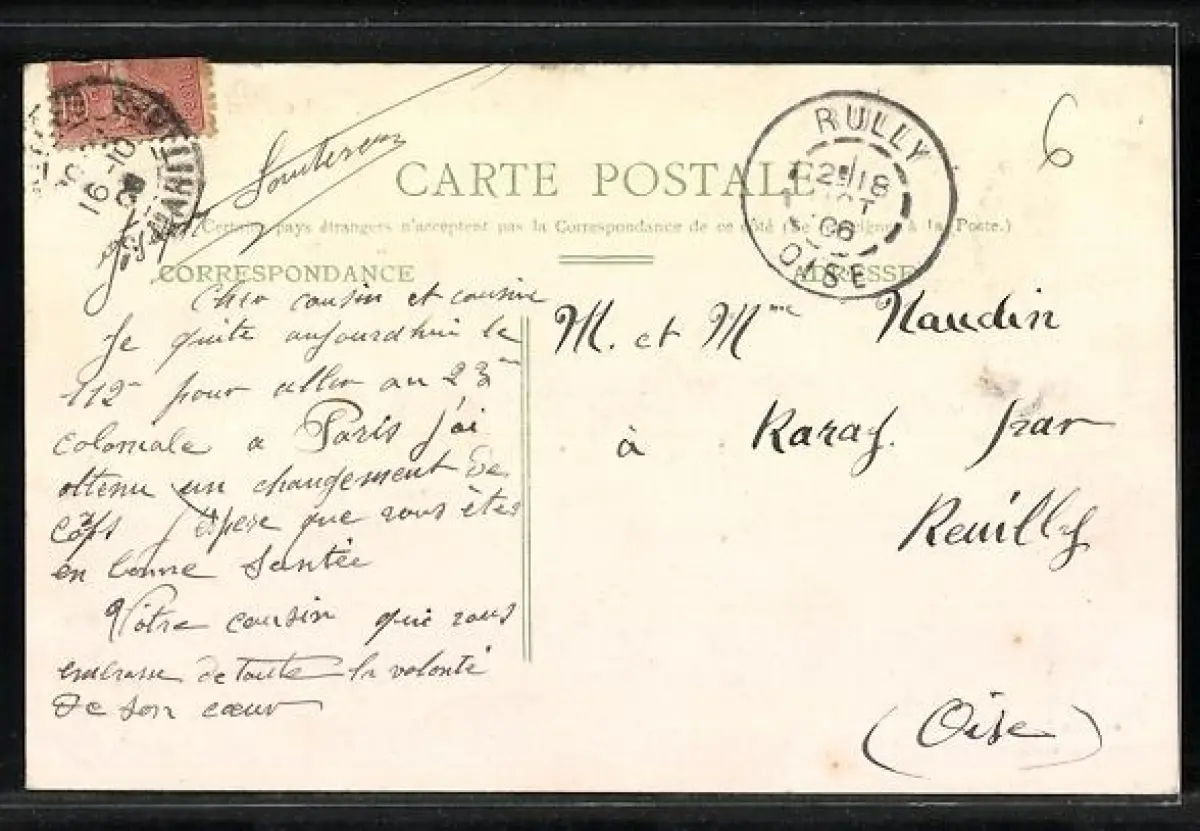 CARTE POSTALE
(Certains pays étrangers n'acceptent pas la Correspondance de ce côté (Se renseigner à la Poste.)
CORRESPONDANCE
ADRESSE
RULLY
18
OCT
06
OISE
16-10
6
Cher cousin et cousine
Je quite aujourdhui le
112e pour aller au 23me
coloniale a Paris j'ai
ottenu un changement de
corps J'espere que vous êtes
en bonne Santée
Votre cousin qui vous
embrasse de toute la volonté
de son cœur
M. et Mme Naudin
à Raray par
Reuilly
(Oise)